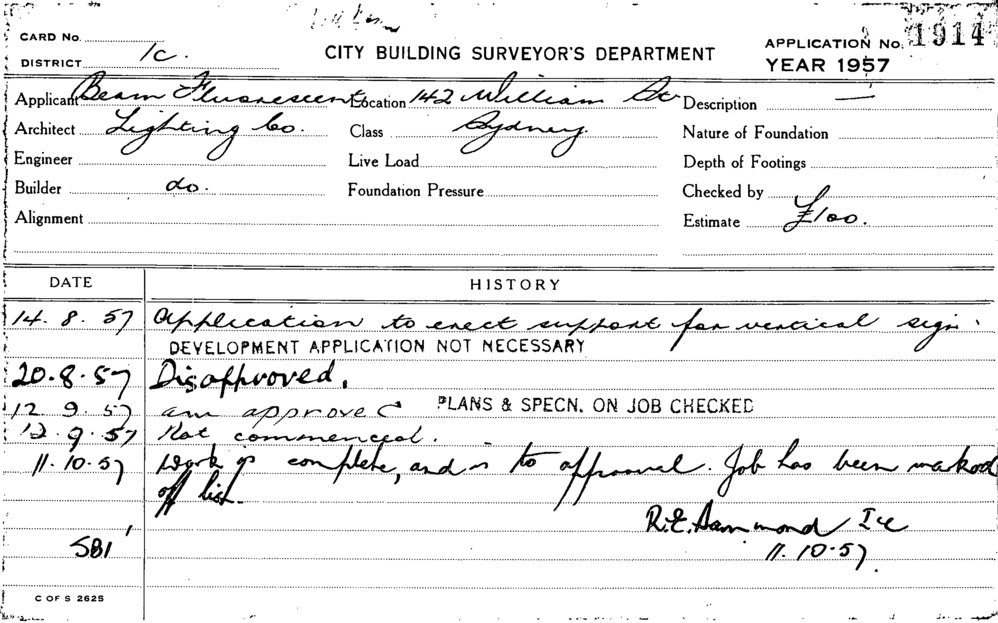 CARD No.
DISTRICT 1c.
CITY BUILDING SURVEYOR'S DEPARTMENT
APPLICATION No. 1914
YEAR 1957
Applicant Beam Fluorescent Location 142 William St Description —
Architect Lighting Co. Class Sydney. Nature of Foundation
Engineer Live Load Depth of Footings
Builder do. Foundation Pressure Checked by
Alignment Estimate £100.
DATE HISTORY
14. 8. 57 Application to erect support for vertical sign.
DEVELOPMENT APPLICATION NOT NECESSARY
20.8.57 Disapproved.
12. 9. 57 am approved PLANS & SPECN. ON JOB CHECKED
12. 9. 57 Not commenced.
11.10.57 Work is complete, and is to approval. Job has been marked
off list.
R.E. Hammond Ic
581 11.10.57
C OF S 2625